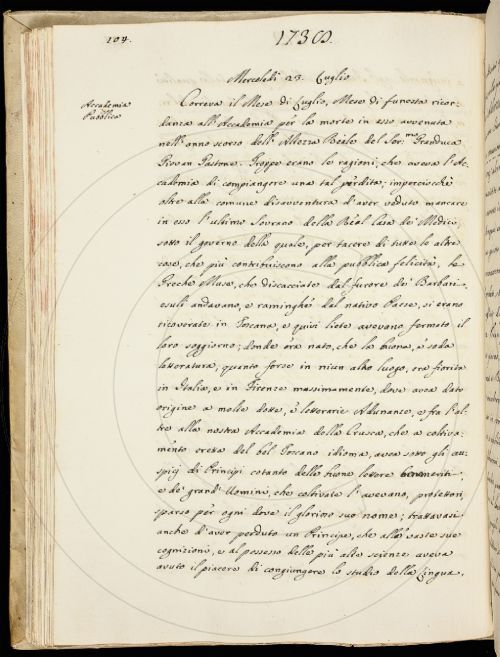 104.
1738.
Mercoledì 23. Luglio
Accademia
Pubblica
Correva il Mese di Luglio, Mese di funesta ricor-
danza all'Accademia per la morte in esso avvenuta
nell'anno scorso dell'Altezza Reale del Ser.mo Granduca
Giovan Gastone. Troppe erano le ragioni, che aveva l'Ac-
cademia di compiangere una tal perdita; imperciocchè
oltre alla comune disavventura d'aver veduto mancare
in esso l'ultimo Sovrano della Real Casa de' Medici,
sotto il governo della quale, per tacere di tutte le altre
cose, che più contribuiscono alla pubblica felicità, le
Greche Muse, che discacciate dal furore de' Barbari
esuli andavano, e raminghe dal nativo Paese, si erano
ricoverate in Toscana, e quivi liete avevano fermato il
loro soggiorno; donde era nato, che la buona, e soda
letteratura, quanto forse in niun altro luogo, era fiorita
in Italia, e in Firenze massimamente, dove avea dato
origine a molte dotte, e letterarie Adunanze, e fra l'al-
tre alla nostra Accademia della Crusca, che a coltiva-
mento eretta del bel Toscano idioma, avea sotto gli au-
spicj di Principi cotanto delle buone lettere benemeriti
e de' grandi Uomini, che coltivate l'avevano, protettori,
sparso per ogni dove il glorioso suo nome; trattavasi
anche d'aver perduto un Principe, che alle vaste sue
cognizioni, e al possesso delle più alte scienze aveva
avuto il piacere di congiungere lo studio della Lingua,